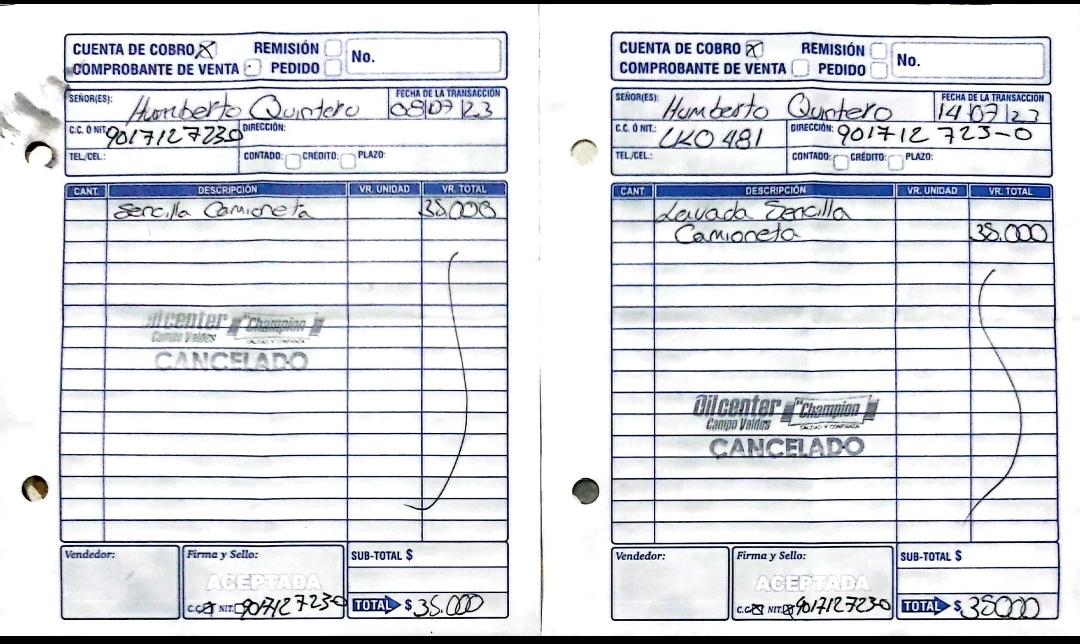 CUENTA DE COBRO X REMISIÓN
COMPROBANTE DE VENTA PEDIDO
No.
SEÑOR(ES): Humberto Quintero
FECHA DE LA TRANSACCIÓN
08 07 23
C.C. Ó NIT: 9017127230 DIRECCIÓN:
TEL./CEL.: CONTADO: CRÉDITO: PLAZO:
CANT. DESCRIPCIÓN VR. UNIDAD VR. TOTAL
Sencilla Camioneta 35.000
Oilcenter "Champion"
Campo Valdes CALIDAD Y CONFIANZA
CANCELADO
Vendedor: Firma y Sello: SUB-TOTAL $
ACEPTADA
C.C. NIT. 901712723-0 TOTAL $ 35.000
CUENTA DE COBRO X REMISIÓN
COMPROBANTE DE VENTA PEDIDO
No.
SEÑOR(ES): Humberto Quintero
FECHA DE LA TRANSACCIÓN
14 07 23
C.C. Ó NIT.: LKO 481 DIRECCIÓN: 901712 723-0
TEL./CEL.: CONTADO: CRÉDITO: PLAZO:
CANT. DESCRIPCIÓN VR. UNIDAD VR. TOTAL
Lavada Sencilla
Camioneta 35.000
Oilcenter "Champion"
Campo Valdes CALIDAD Y CONFIANZA
CANCELADO
Vendedor: Firma y Sello: SUB-TOTAL $
ACEPTADA
C.C. NIT. 901712723-0 TOTAL $ 35000